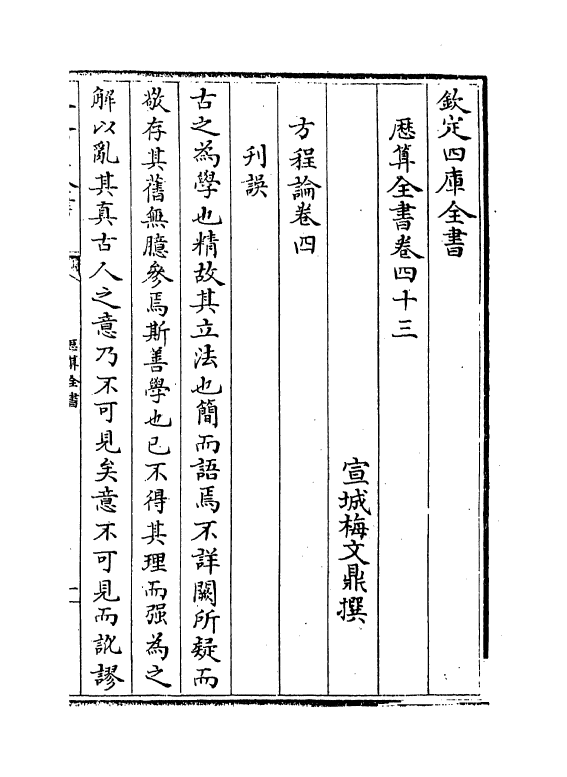 欽定四庫全書
厯算全書卷四十三
宣城梅文鼎撰
方程論卷四
刋誤
古之為學也精故其立法也簡而語焉不詳闕所疑而
敬存其舊無臆參焉斯善學也已不得其理而强為之
解以亂其真古人之意乃不可見矣意不可見而訛謬
厯算全書
一